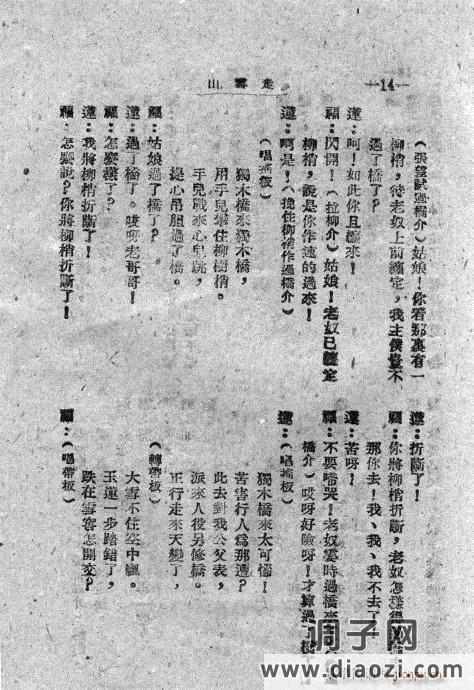 —14—
走雪山
（張望試過橋介）姑娘！你看那裏有一
柳梢，待老奴上前纏定，我主僕豈不
過了橋了？
蓮：呵！如此你且纏來！
福：閃開！（拉柳介）姑娘！老奴已纏定
柳梢，說是你作速的過來！
蓮：呵是！（挽住柳梢作過橋介）
（唱搖板）
獨木橋來獨木橋，
用手兒攀住柳樹梢。
手兒戰來心兒跳，
提心吊胆過了橋。
福：姑娘過了橋了？
蓮：過了橋了。哎呀老哥哥！
福：怎麼樣了？
蓮：我將柳梢折斷了！
福：怎麼說？你將柳梢折斷了！
蓮：折斷了！
福：你將柳梢折斷，老奴怎樣得過
那你去！我、我、我不去了！
蓮：苦呀！
福：不要啼哭！老奴霎時過橋來
橋介）哎呀好險呀！才算過了橋
蓮：（唱搖板）
獨木橋來太可惱！
苦害行人爲那遭？
此去對我公父表，
派來人役另修橋。
正行走來天變了，
（轉帶板）
大雪不住空中飄。
玉蓮一步踏錯了，
跌在雪窖怎開交？
福：（唱帶板）
调子网
www.diaozi.com